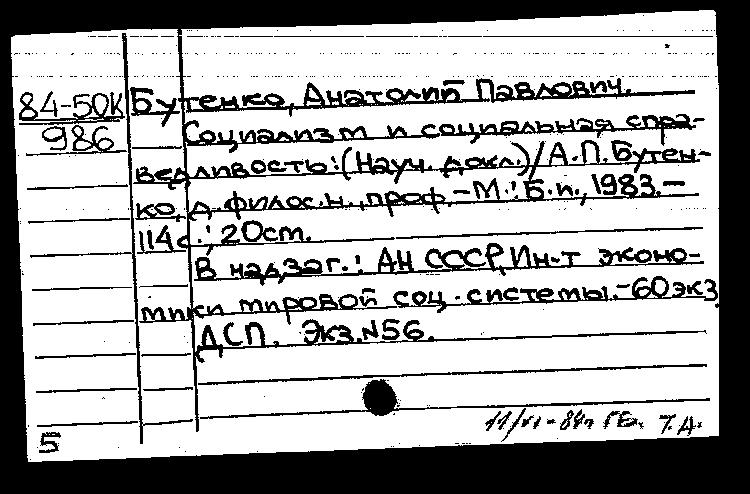 84-50К Бутенко, Анатолий Павлович.
986 Социализм и социальная спра-
ведливость: (Науч. докл.) / А.П.Бутен-
ко, д. филос.н., проф. - М.: Б.и., 1983. -
114с.; 20cm.
В надзаг.: АН СССР, Ин-т эконо-
мики мировой соц. системы. - 60экз
ДСП. Экз.N56.
11/VI-84г ГБ. Т.Д.
5